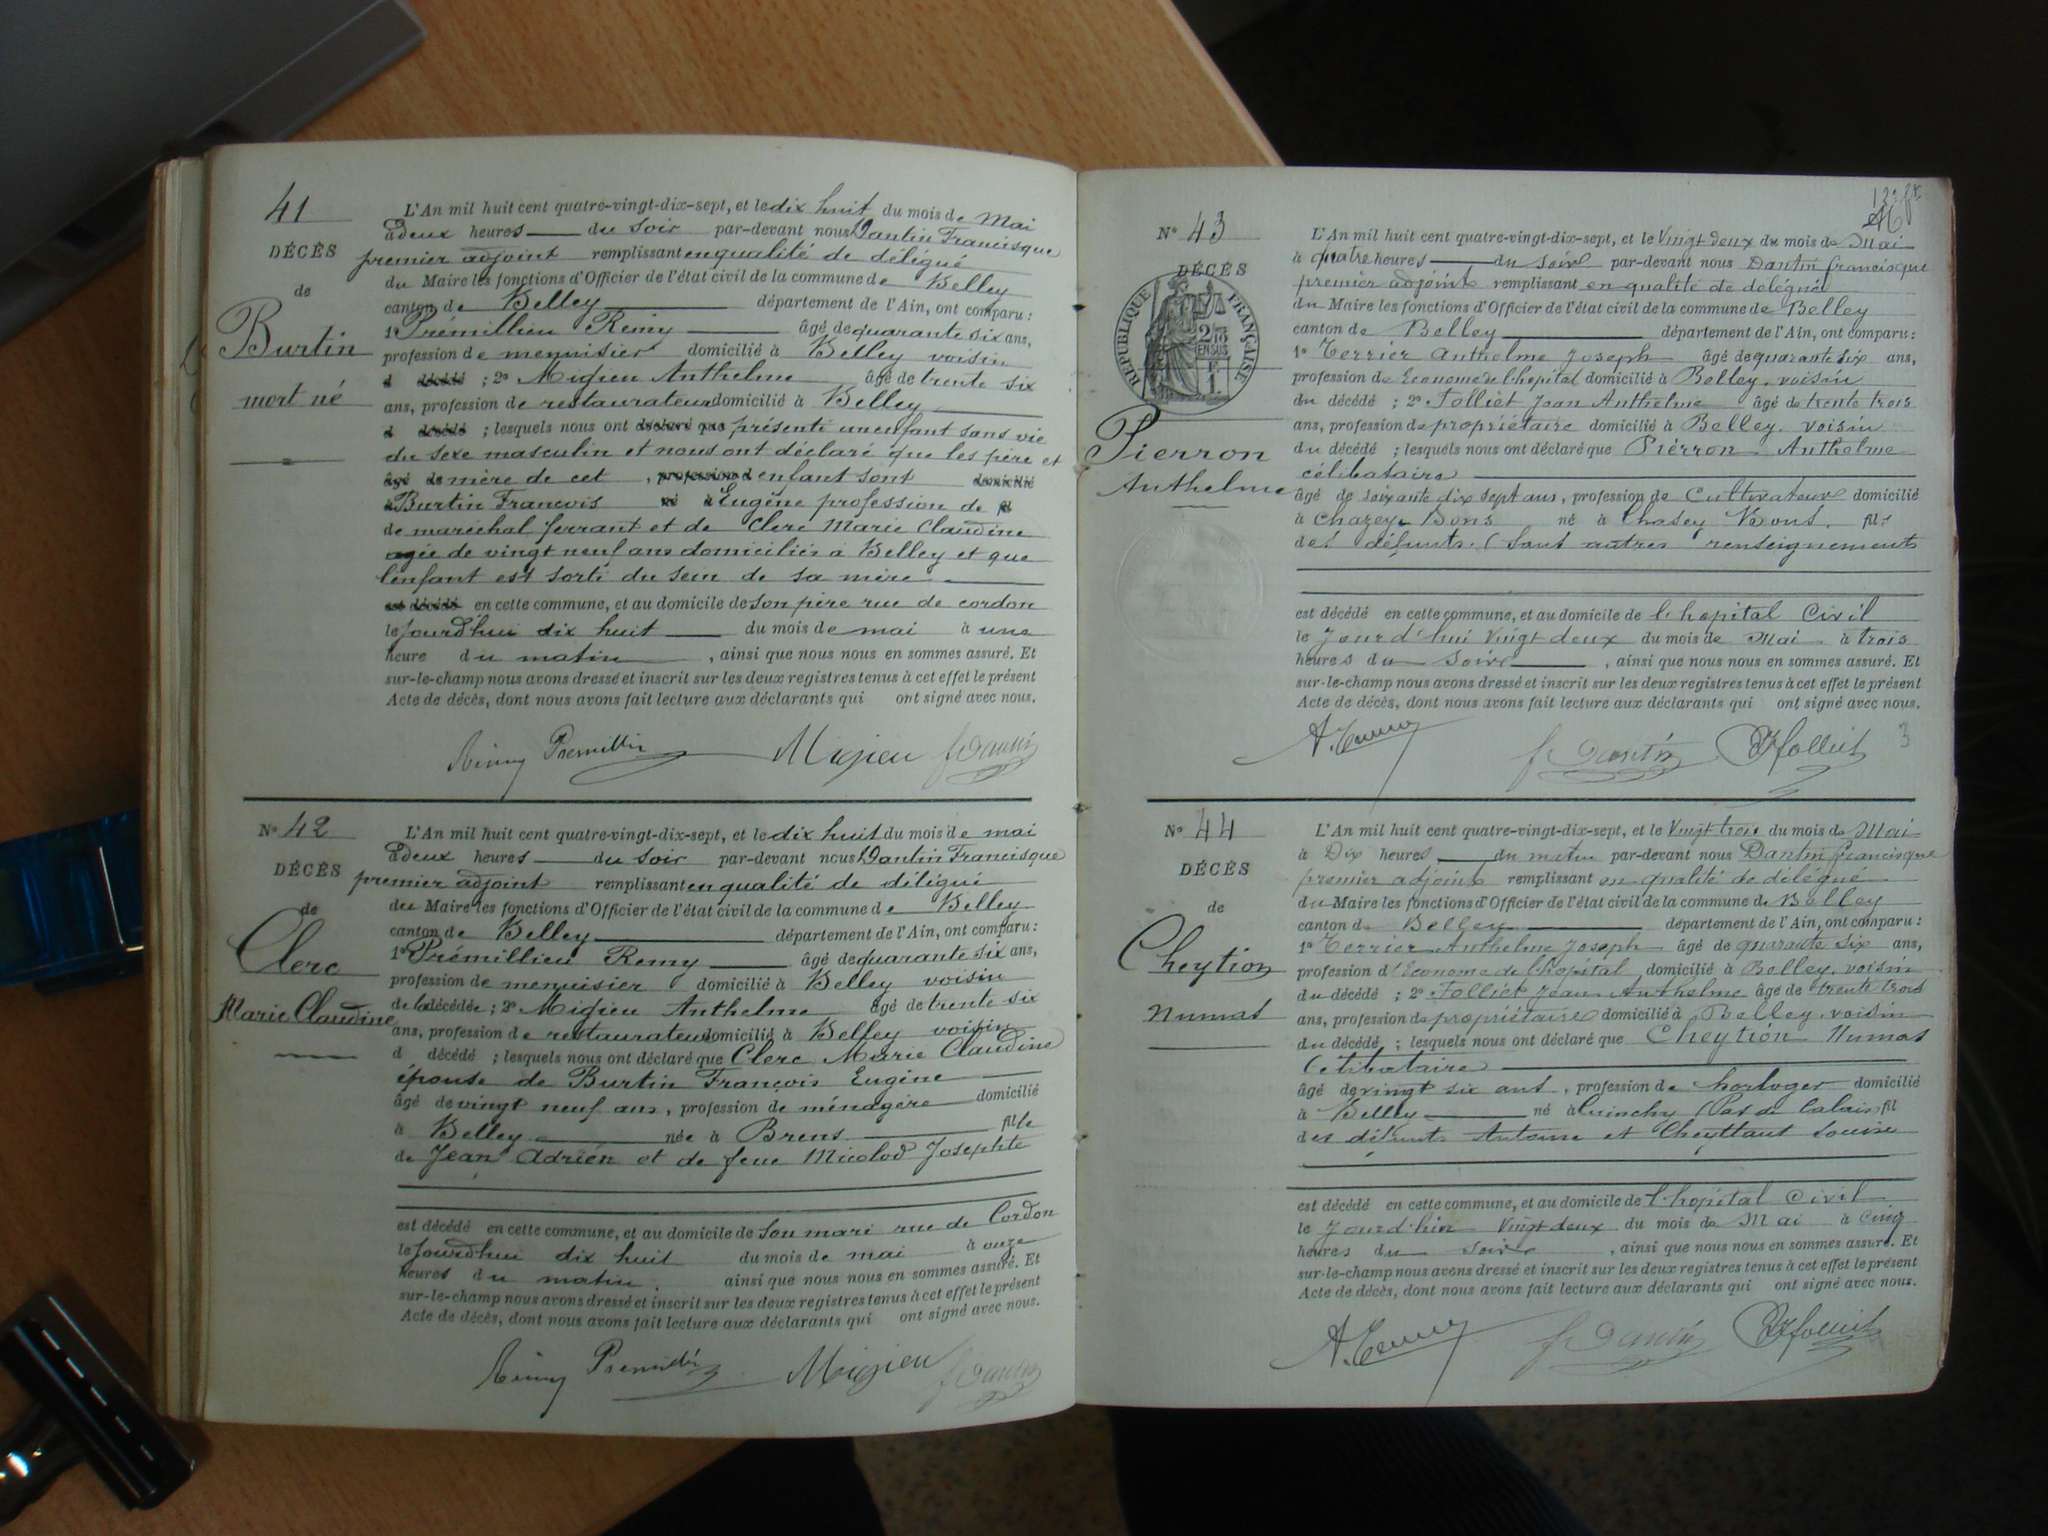 41
DÉCÈS
de
Burtin
mort né
L'An mil huit cent quatre-vingt-dix-sept, et le dix huit du mois de Mai
à deux heures du soir par-devant nous Dantin Francisque
premier adjoint remplissant en qualité de délégué
du Maire les fonctions d'Officier de l'état civil de la commune de Belley
canton de Belley département de l'Ain, ont comparu :
1° Prémillieu Rémy âgé de quarante six ans,
profession de menuisier domicilié à Belley voisin
d décédé ; 2° Migieu Anthelme âgé de trente six
ans, profession de restaurateur domicilié à Belley
d décédé ; lesquels nous ont déclaré que présenté un enfant sans vie
du sexe masculin et nous ont déclaré que les père et
âgé de mère de cet , profession d enfant sont domicilié
à Burtin François né à Eugène profession de fil
de maréchal ferrant et de Clerc Marie Claudine
agée de vingt neuf ans domiciliés à Belley et que
l'enfant est sorti du sein de sa mère
est décédé en cette commune, et au domicile de son père rue de cordon
le jourd'hui dix huit du mois de mai à une
heure du matin , ainsi que nous nous en sommes assuré. Et
sur-le-champ nous avons dressé et inscrit sur les deux registres tenus à cet effet le présent
Acte de décès, dont nous avons fait lecture aux déclarants qui ont signé avec nous.
Rémy Premillieu Migieu fr Dantin
N° 42
DÉCÈS
de
Clerc
Marie Claudine
L'An mil huit cent quatre-vingt-dix-sept, et le dix huit du mois de mai
à deux heures du soir par-devant nous Dantin Francisque
premier adjoint remplissant en qualité de délégué
du Maire les fonctions d'Officier de l'état civil de la commune de Belley
canton de Belley département de l'Ain, ont comparu :
1° Prémillieu Remy âgé de quarante six ans,
profession de menuisier domicilié à Belley voisin
de la décédée ; 2° Migieu Anthelme âgé de trente six
ans, profession de restaurateur domicilié à Belley voisin
d décédé ; lesquels nous ont déclaré que Clerc Marie Claudine
épouse de Burtin François Eugène
âgé de vingt neuf ans, profession de ménagère domicilié
à Belley née à Brens fille
de Jean Adrien et de feue Micolod Josephte
est décédé en cette commune, et au domicile de son mari rue de Cordon
le jourd'hui dix huit du mois de mai à onze
heures du matin , ainsi que nous nous en sommes assuré. Et
sur-le-champ nous avons dressé et inscrit sur les deux registres tenus à cet effet le présent
Acte de décès, dont nous avons fait lecture aux déclarants qui ont signé avec nous.
Rémy Premillieu Migieu fr Dantin
N° 43
DÉCÈS
RÉPUBLIQUE FRANÇAISE
Pierron
Anthelme
L'An mil huit cent quatre-vingt-dix-sept, et le Vingt deux du mois de Mai
à quatre heures du soir par-devant nous Dantin francisque
premier adjoint remplissant en qualité de délégué
du Maire les fonctions d'Officier de l'état civil de la commune de Belley
canton de Belley département de l'Ain, ont comparu :
1° Terrier Anthelme Joseph âgé de quarante six ans,
profession de Econome de l'hopital domicilié à Belley, voisin
du décédé ; 2° Folliet Jean Anthelme âgé de trente trois
ans, profession de propriétaire domicilié à Belley, voisin
du décédé ; lesquels nous ont déclaré que Pierron Anthelme
célibataire
âgé de soixante dix sept ans, profession de Cultivateur domicilié
à Chazey-Bons né à Chasey Bons, fils
des défunts (sans autres renseignements
est décédé en cette commune, et au domicile de l'hopital Civil
le Jourd'hui Vingt deux du mois de Mai à trois
heures du soir , ainsi que nous nous en sommes assuré. Et
sur-le-champ nous avons dressé et inscrit sur les deux registres tenus à cet effet le présent
Acte de décès, dont nous avons fait lecture aux déclarants qui ont signé avec nous.
fr Dantin Folliet 3
N° 44
DÉCÈS
de
Cheytion
Numas
L'An mil huit cent quatre-vingt-dix-sept, et le Vingt trois du mois de Mai
à Dix heures du matin par-devant nous Dantin francisque
premier adjoint remplissant en qualité de délégué
du Maire les fonctions d'Officier de l'état civil de la commune de Belley
canton de Belley département de l'Ain, ont comparu :
1° Terrier Anthelme Joseph âgé de quarante six ans,
profession d'Econome de l'hopital domicilié à Belley, voisin
du décédé ; 2° Folliet Jean Anthelme âgé de trente trois
ans, profession de propriétaire domicilié à Belley, voisin
du décédé ; lesquels nous ont déclaré que Cheytion Numas
Celibataire
âgé de vingt six ans, profession de horloger domicilié
à Belley né à Cuinchy (Pas de Calais) fil
des défunts Antoine et Cheyttant Louise
est décédé en cette commune, et au domicile de l'hopital Civil
le Jourd'hui Vingt deux du mois de Mai à Cinq
heures du soir , ainsi que nous nous en sommes assuré. Et
sur-le-champ nous avons dressé et inscrit sur les deux registres tenus à cet effet le présent
Acte de décès, dont nous avons fait lecture aux déclarants qui ont signé avec nous.
fr Dantin Folliet